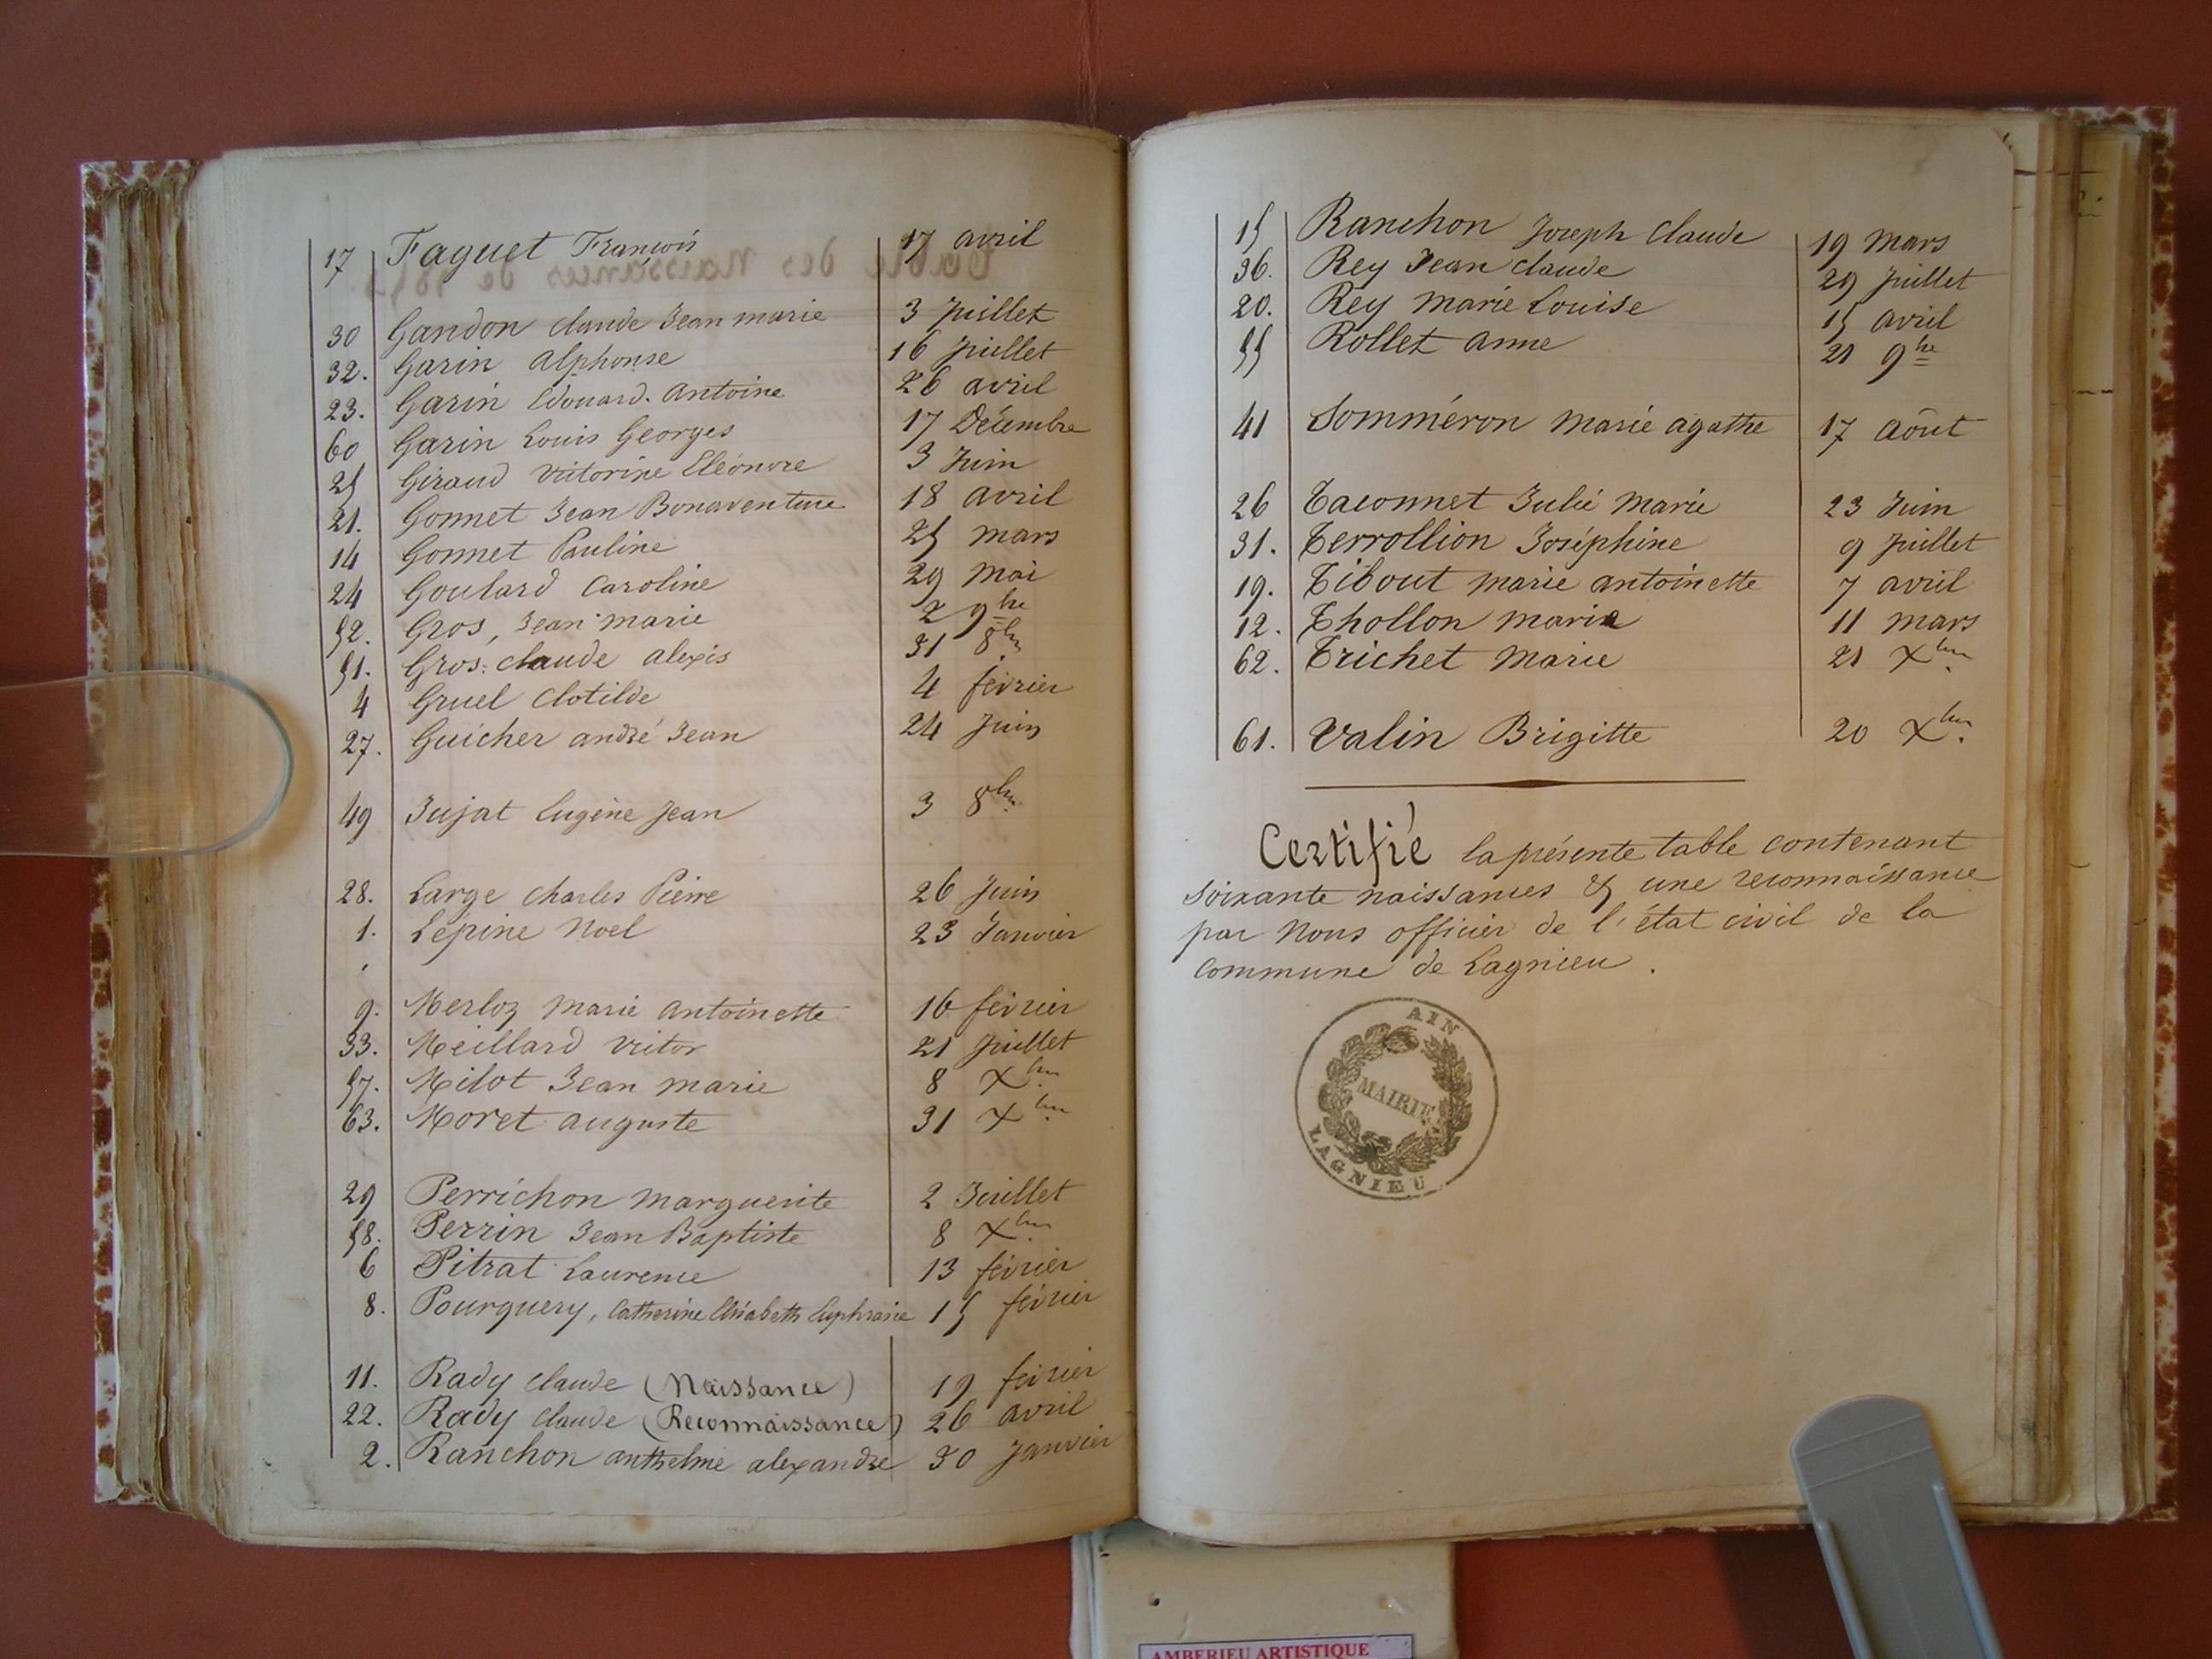 17 Faguet François 17 avril
30 Gandon claude Jean marie 3 Juillet
32. Garin alphonse 16 Juillet
23. Garin Edouard. Antoine 26 avril
60 Garin Louis Georges 17 Décembre
25 Giraud Victorine Eléonore 3 Juin
21. Gonnet Jean Bonaventure 18 avril
14 Gonnet Pauline 25 mars
24 Goulard Caroline 29 Mai
52. Gros, Jean marie 2 9bre
51. Gros. claude alexis 31 8bre
4 Gruel Clotilde 4 février
27. Guicher andré Jean 24 Juin
49 Jujat Eugène Jean 3 8bre
28. Large Charles Pierre 26 Juin
1. Lépine Noel 23 Janvier
9. Merloz Marie Antoinette 16 février
33. Meillard Victor 21 Juillet
57. Milot Jean marie 8 Xbre
63. Moret auguste 31 Xbre
29 Perrichon Marguerite 2 Juillet
58. Perrin Jean Baptiste 8 Xbre
6 Pitrat Laurence 13 février
8. Pourquery, Catherine Elisabeth Euphrasie 15 février
11. Rady claude (Naissance) 19 février
22. Rady claude (Reconnaissance) 26 avril
2. Ranchon anthelme alexandre 30 Janvier
15 Ranchon Joseph Claude 19 Mars
36. Rey Jean claude 29 Juillet
20. Rey Marie Louise 15 avril
55 Rollet anne 21 9bre
41 Somméron Marie agathe 17 août
26 Taconnet Julie Marie 23 Juin
31. Terrollion Joséphine 9 Juillet
19. Tibout marie antoinette 7 avril
12. Thollon marie 11 mars
62. Trichet Marie 21 Xbre
61. Valin Brigitte 20 Xbre
Certifié la présente table contenant
soixante naissances & une reconnaissance
par Nous officier de l'état civil de la
commune de Lagnieu.
AIN
MAIRIE
LAGNIEU
AMBERIEU ARTISTIQUE